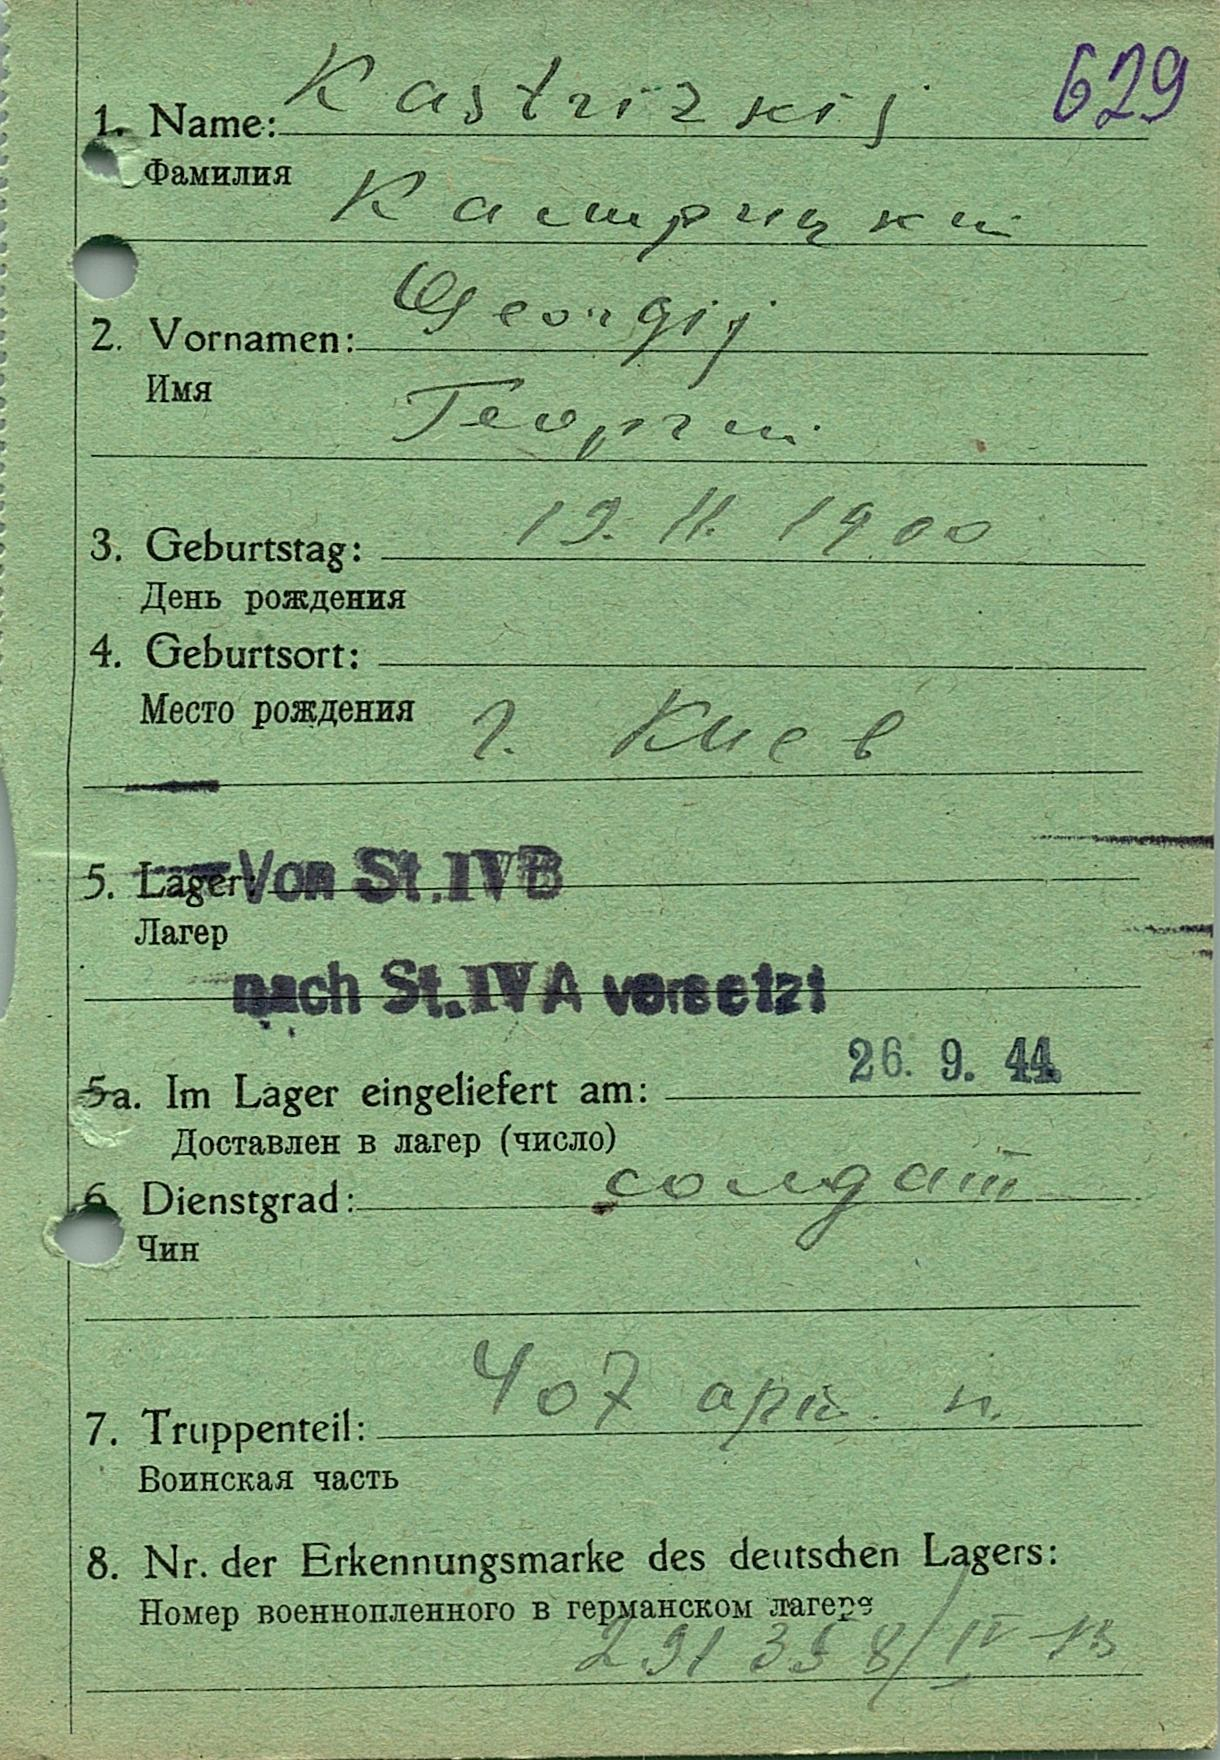 Kastrizkij 629
1. Name:
Фамилия
Кастрицкий
Georgij
2. Vornamen:
Имя
Георгий
3. Geburtstag: 19. 11. 1900
День рождения
4. Geburtsort:
Место рождения г. Киев
5. Lager: Von St. IV B
Лагер
nach St. IV A versetzt
26. 9. 44.
5a. Im Lager eingeliefert am:
Доставлен в лагер (число)
6. Dienstgrad: солдат
Чин
407 арт. п.
7. Truppenteil:
Воинская часть
8. Nr. der Erkennungsmarke des deutschen Lagers:
Номер военнопленного в германском лагере
291 358/IV B